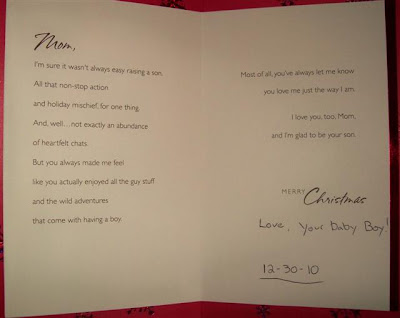 Mom,
I'm sure it wasn't always easy raising a son.
All that non-stop action
and holiday mischief, for one thing.
And, well...not exactly an abundance
of heartfelt chats.
But you always made me feel
like you actually enjoyed all the guy stuff
and the wild adventures
that come with having a boy.
Most of all, you've always let me know
you love me just the way I am.
I love you, too, Mom,
and I'm glad to be your son.
MERRY Christmas
Love, Your Baby Boy!
12-30-10